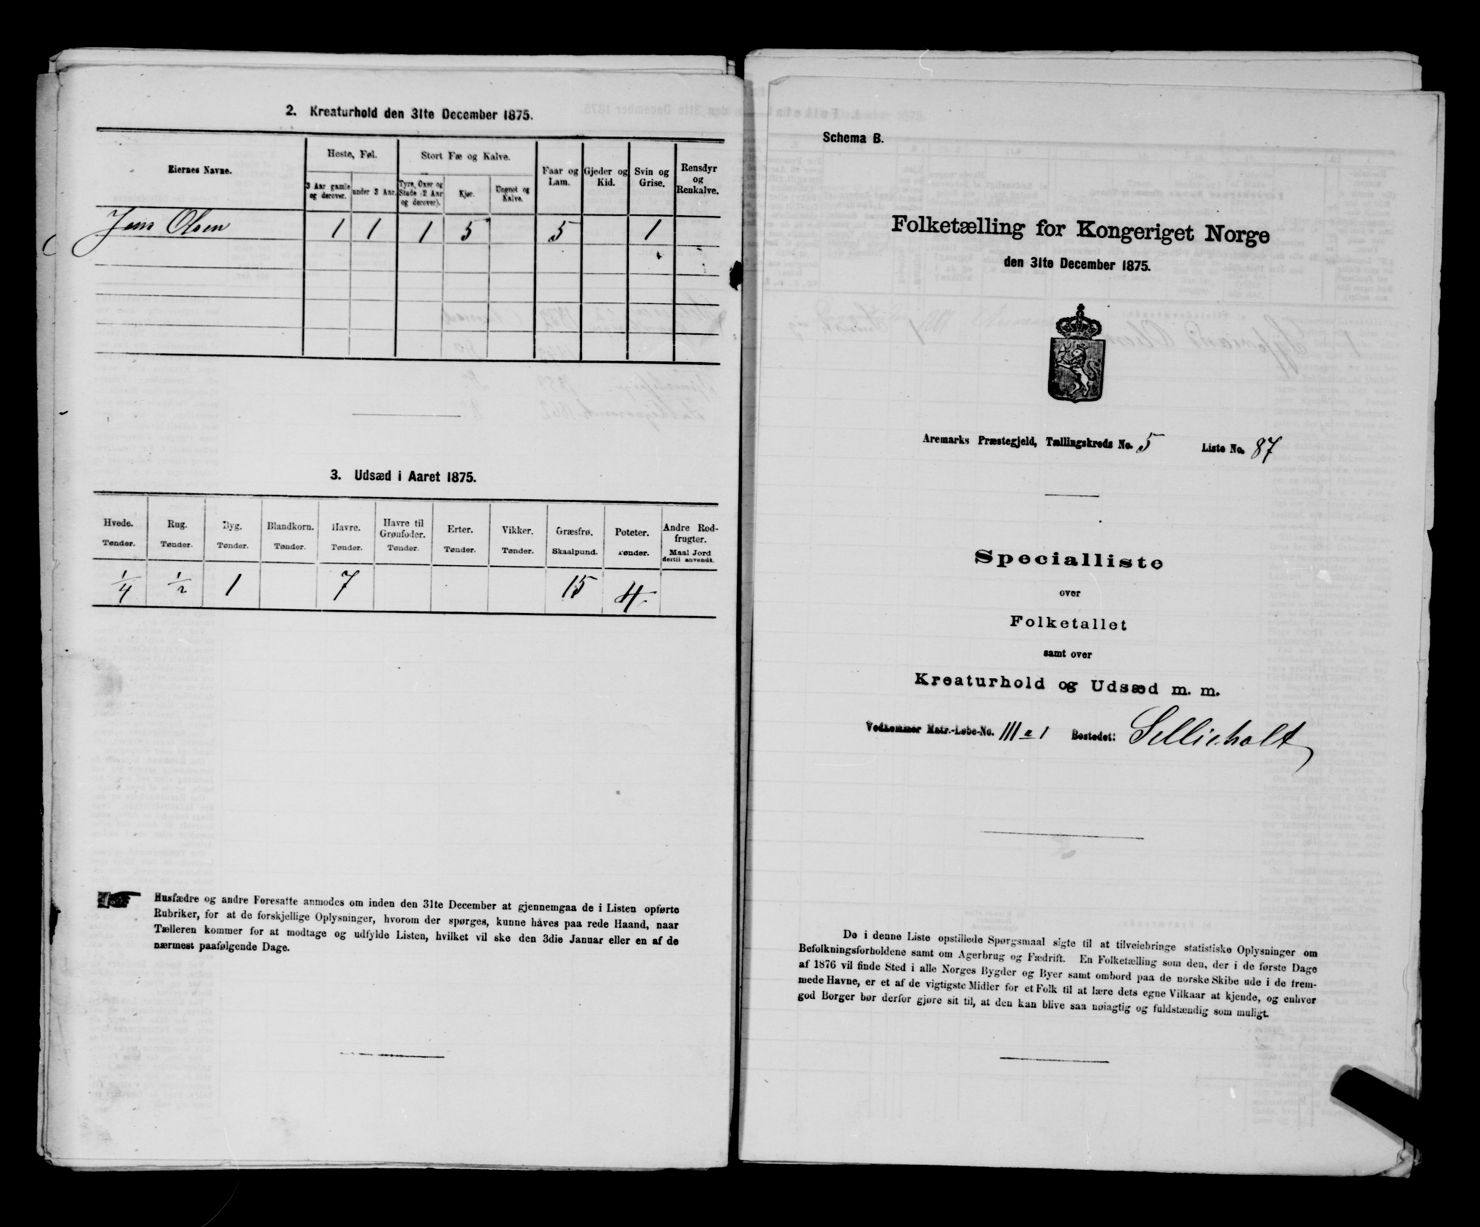 2. Kreaturhold den 31te December 1875.
Eiernes Navne.
Heste, Føl.
Stort Fæ og Kalve.
Faar og Lam.
Gjeder og Kid.
Svin og Grise.
Rensdyr og Renkalve.
3 Aar gamle og derover.
under 3 Aar.
Tyre, Oxer og Stude (2 Aar og derover).
Kjør.
Ungnøt og Kalve.
Jens Olsen 1 1 1 5 5 1
3. Udsæd i Aaret 1875.
Hvede. Rug. Byg. Blandkorn. Havre. Havre til Grønfoder. Erter. Vikker. Græsfrø. Poteter. Andre Rodfrugter.
Tønder. Tønder. Tønder. Tønder. Tønder. Tønder. Tønder. Tønder. Skaalpund. Tønder. Maal Jord dertil anvendt.
1/4 1/2 1 7 15 4
Husfædre og andre Foresatte anmodes om inden den 31te December at gjennemgaa de i Listen opførte
Rubriker, for at de forskjellige Oplysninger, hvorom der spørges, kunne haves paa rede Haand, naar
Tælleren kommer for at modtage og udfylde Listen, hvilket vil ske den 3die Januar eller en af de
nærmest paafølgende Dage.
Schema B.
Folketælling for Kongeriget Norge
den 31te December 1875.
Aremarks Præstegjeld, Tællingskreds No. 5 Liste No. 87
Specialliste
over
Folketallet
samt over
Kreaturhold og Udsæd m. m.
Vedkommer Matr.-Løbe-No. 111 a 1 Bostedet: Sellieholt
De i denne Liste opstillede Spørgsmaal sigte til at tilveiebringe statistiske Oplysninger om
Befolkningsforholdene samt om Agerbrug og Fædrift. En Folketælling som den, der i de første Dage
af 1876 vil finde Sted i alle Norges Bygder og Byer samt ombord paa de norske Skibe ude i de frem-
mede Havne, er et af de vigtigste Midler for et Folk til at lære dets egne Vilkaar at kjende, og enhver
god Borger bør derfor gjøre sit til, at den kan blive saa nøiagtig og fuldstændig som muligt.